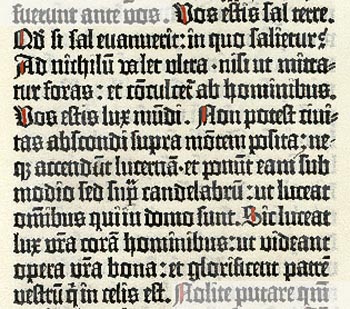 fuerunt ante vos. Vos estis sal terre.
Qđ si sal euanuerit: in quo salietur?
Ad nichilū valet ultra · nisi ut mitta-
tur foras: et cōculcet᷑ ab hominibus.
Vos estis lux mūdi. Non potest ciui-
tas abscondi supra mōtem posita; ne-
qꝫ accendūt lucernā · et ponūt eam sub
modio sed sup̄ candelabrū: ut luceat
omībus qui in domo sunt. Sic luceat
lux vr̄a corā hominibus: ut videant
opera vr̄a bona: et glorificent patrē
vestrū q̄ in celis est. Nolite putare qm̄